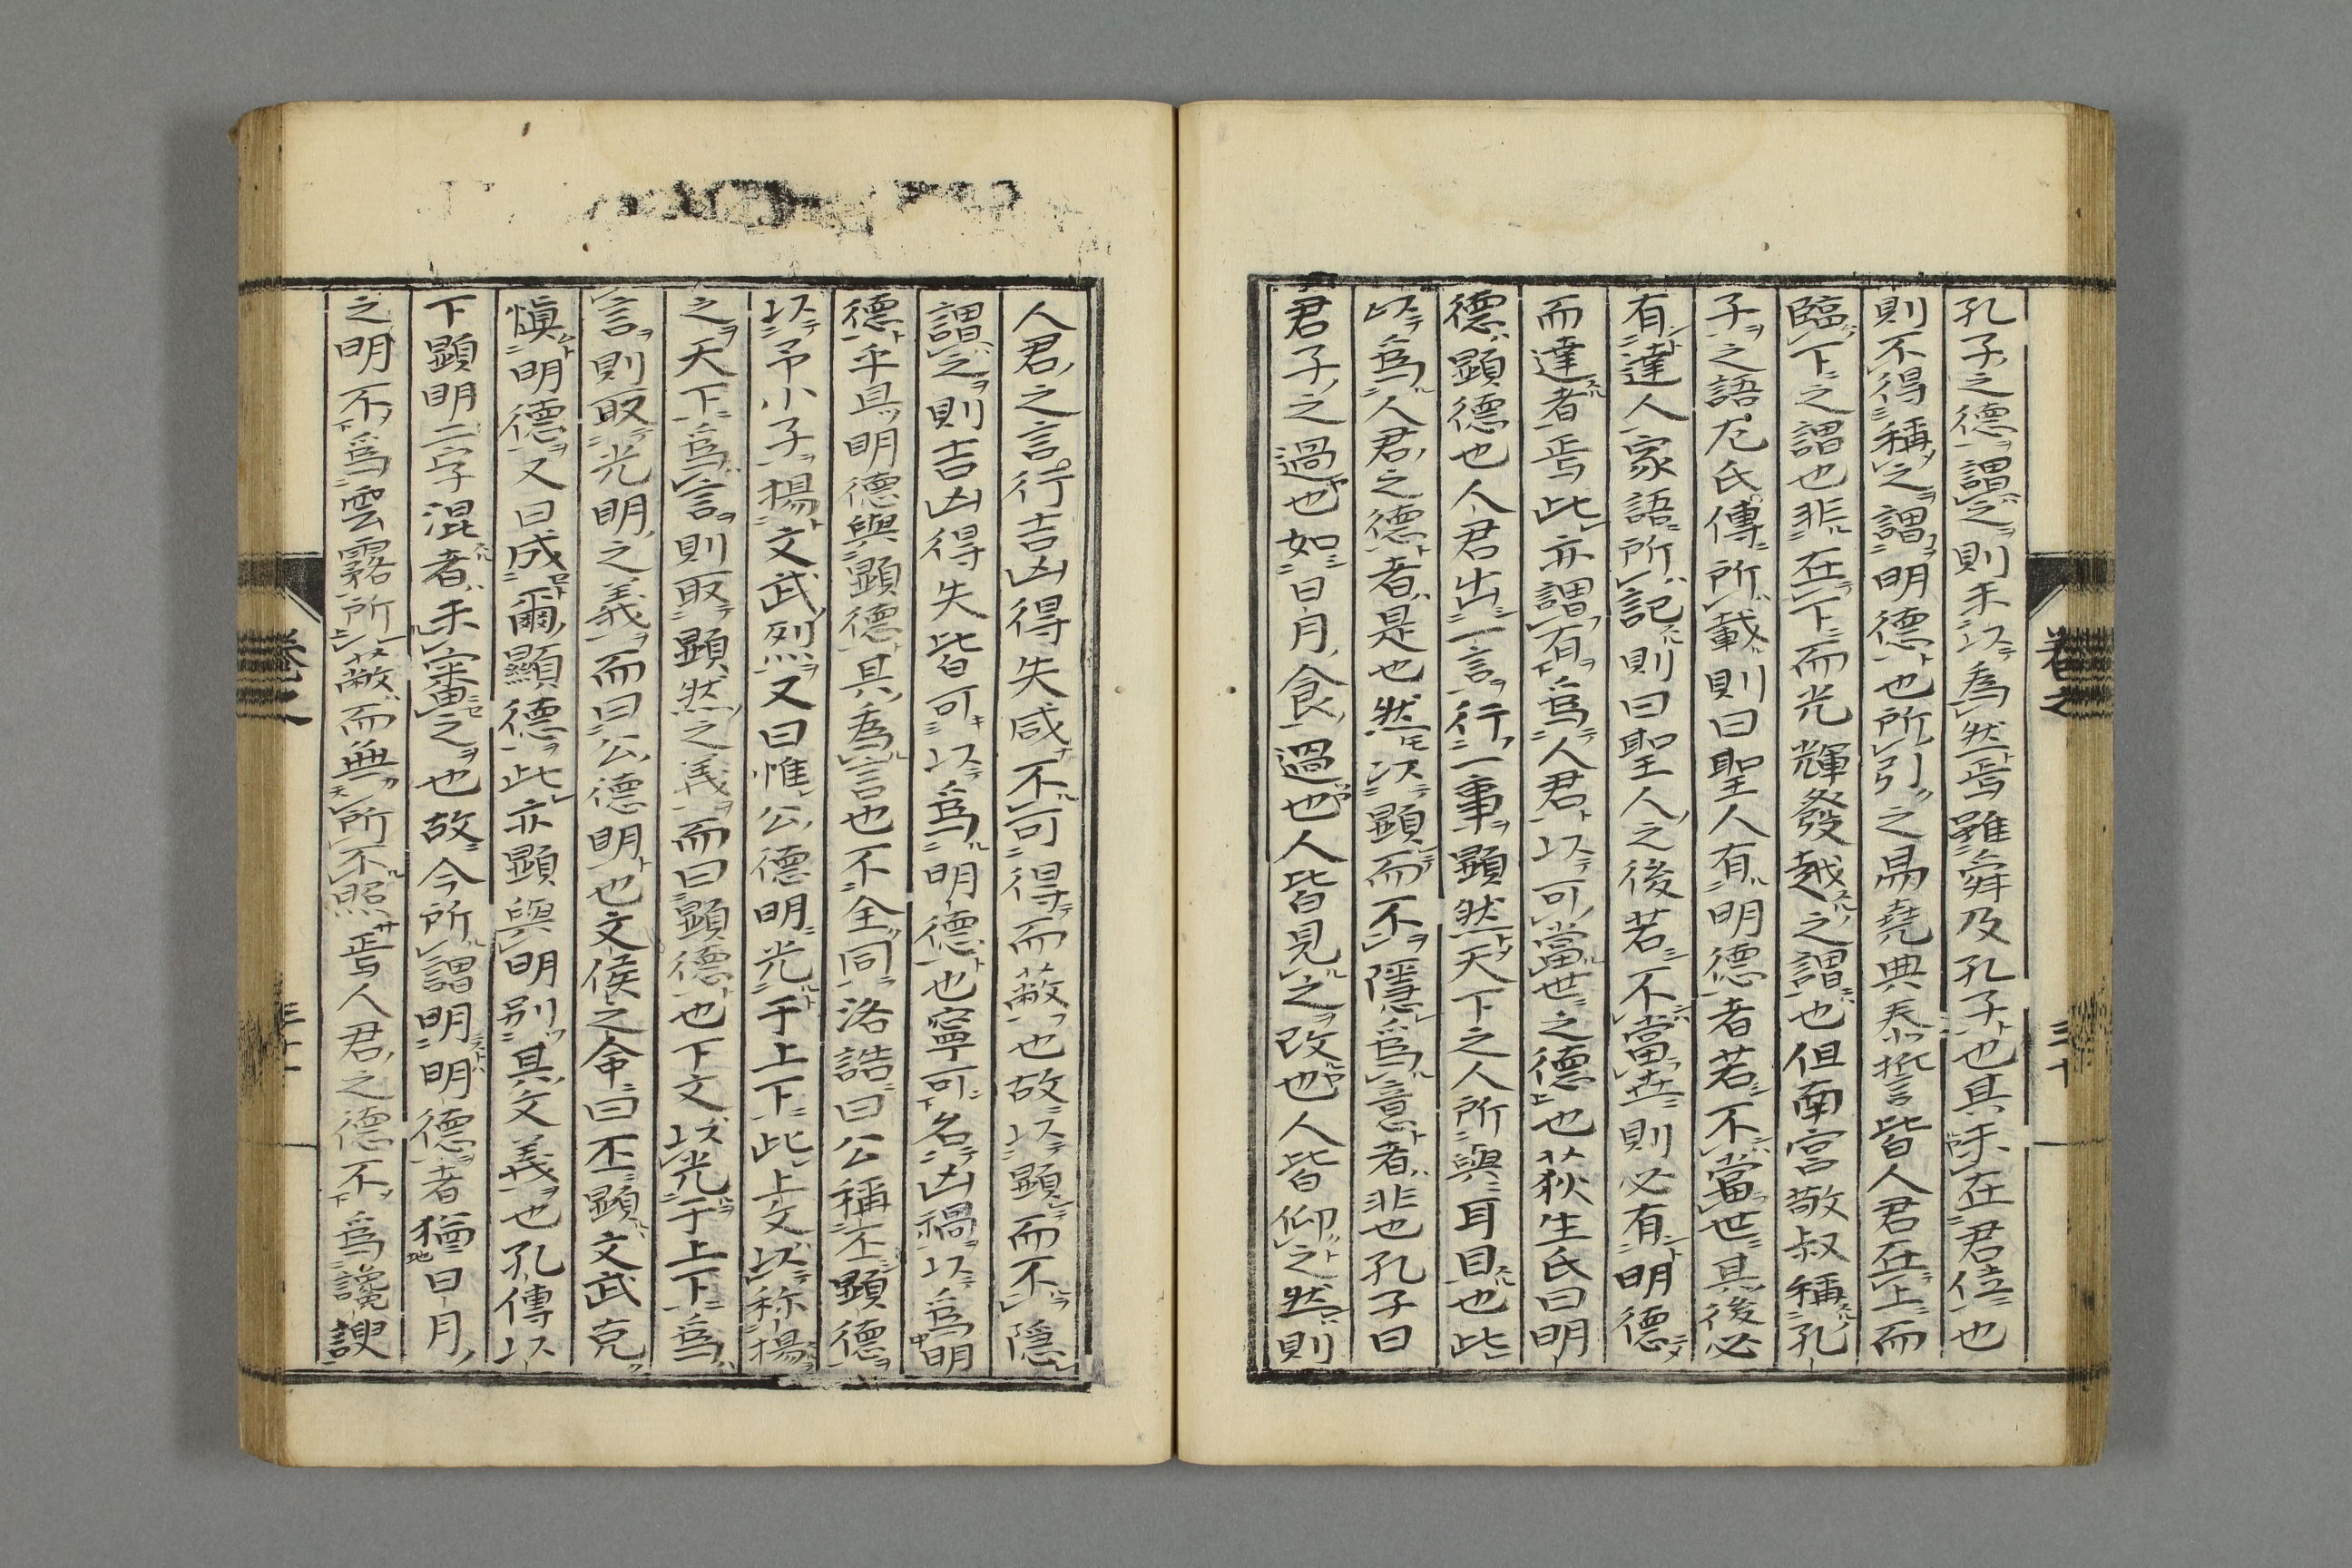 孔子之德謂之則未以為然焉雖舜及孔子也其未在君位也
則不得稱之謂明德也所引之昜堯典泰誓皆人君在上而
臨下之謂也非在下而光輝發越之謂也但南宮敬叔稱孔
子之語左氏傳所載則曰聖人有明德者若不當世其後必
有達人家語所記則曰聖人之後若不當世則必有明德
而達者焉此亦謂有爲人君以可當世之德也荻生氏曰明
德顯德也人君出一言行一事顯然天下之人所與耳目也此
以爲人君之德者是也然以顯而不隱爲意者非也孔子曰
君子之過也如日月食過也人皆見之改也人皆仰之然則
卷之
三十
人君之言行吉凶得失咸不可得而蔽也故以顯而不隱
謂之則吉凶得失皆可以爲明德也寧可名凶禍以爲明
德乎且明德與顯德其為言也不全同洛誥曰公稱丕顯德
以予小子揚文武烈又曰惟公德明光于上下此上文以称揚
之天下爲言則取顯然之義而曰顯德也下文以光于上下爲
言則取光明之義而曰公德明也文侯之命曰丕顯文武克
愼明德又曰成爾顯德此亦顯與明別其文義也孔傳以
下顯明二字混者未審之也故今所謂明明德者猶日月
之明不爲雲霧所蔽而無所不照焉人君之德不爲讒諛
卷之
三十一